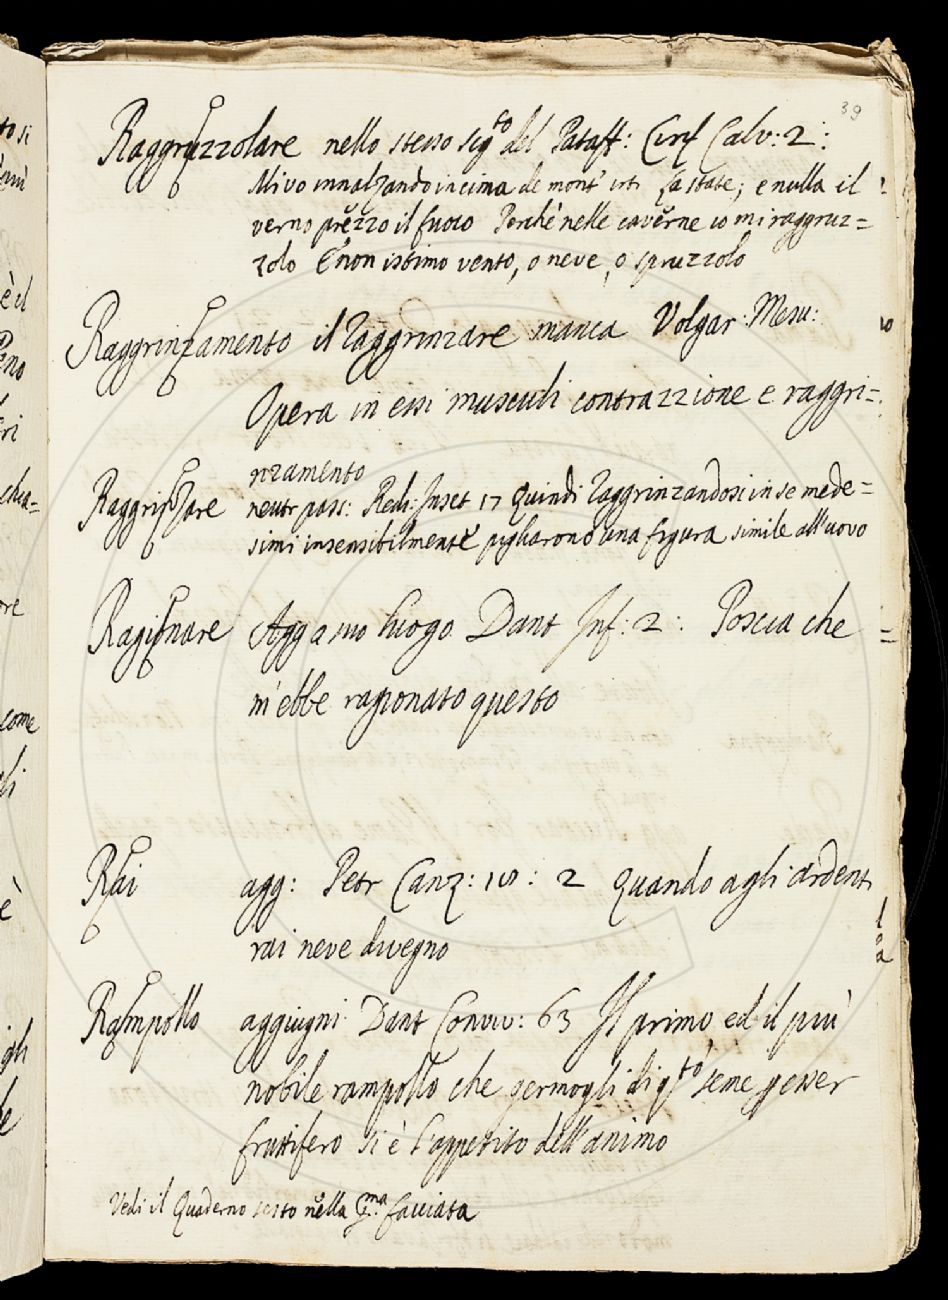 39
Raggruzzolare nello stesso sig.to del Pataff: Cirif Calv: 2:
Mi vo innalzando in cima de mont' la state; e nulla il
verno prezzo il fuoco Perche nelle caverne io mi raggruz=
zolo E non istimo vento, o neve, o spruzzolo
Raggrinzamento il Raggrinzare manca Volgar: Mesu:
Opera in essi musculi contrazzione e raggri=
nzamento
Raggrinzare neutr pass: Redi: Inset 17 Quindi Raggrinzandosi in se mede=
simi insensibilmente pigliarono una figura simile all'uovo
Ragionare Agg a suo luogo Dant Inf: 2: Poscia che
m'ebbe ragionato questo
Rai agg: Petr Canz: : 2 Quando agli ardenti
rai neve divegno
Rampollo aggiugni Dant Conviv: 63 Il primo ed il più
nobile rampollo che germogli di q.to seme p esser
fruttifero si è l'appetito dell'animo
Vedi il Quaderno sesto nella p.ma facciata